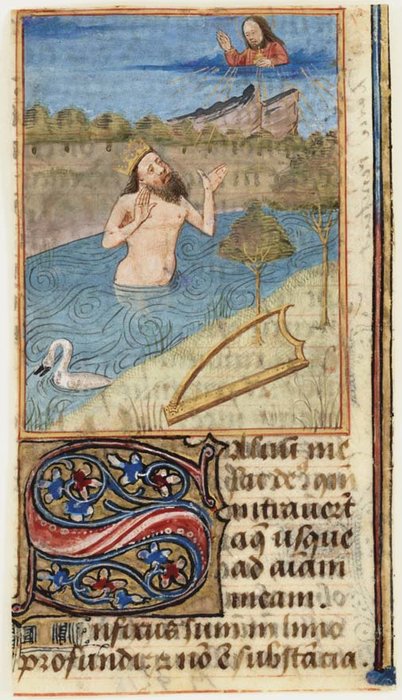 Saluum me
fac de⁹ qm̄
intrauer̄t
aq̄ usque
ad aīam
meam.
Infixus sum in limo
profundi ⁊ nō ē substācia.